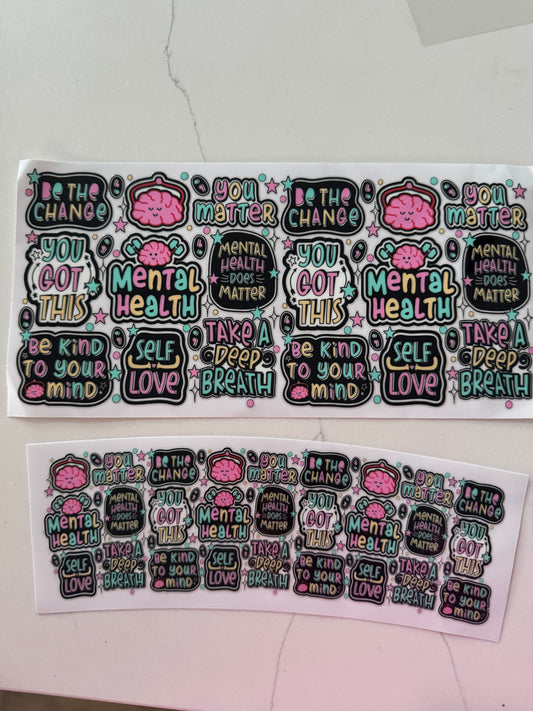 Be THE
CHANGE
YOU
matter
Be THE
CHANGE
YOU
matter
YOU
GOT
THIS
Mental
HEALTH
MENTAL
HEALTH
DOES
MATTER
YOU
GOT
THIS
Mental
HEALTH
MENTAL
HEALTH
DOES
MATTER
Be KIND
TO YOUR
MIND
SELF
LOVE
TAKE A
DEEP
BREATH
Be KIND
TO YOUR
MIND
SELF
LOVE
TAKE A
DEEP
BREATH
YOU
matter
Be THE
CHANGE
YOU
matter
Be THE
CHANGE
YOU
matter
Be THE
CHANGE
Mental
HEALTH
MENTAL
HEALTH
DOES
MATTER
YOU
GOT
THIS
Mental
HEALTH
MENTAL
HEALTH
DOES
MATTER
YOU
GOT
THIS
Mental
HEALTH
MENTAL
HEALTH
DOES
MATTER
YOU
GOT
THIS
SELF
LOVE
TAKE A
DEEP
BREATH
Be KIND
TO YOUR
MIND
SELF
LOVE
TAKE A
DEEP
BREATH
Be KIND
TO YOUR
MIND
SELF
LOVE
TAKE A
DEEP
BREATH
Be KIND
TO YOUR
MIND